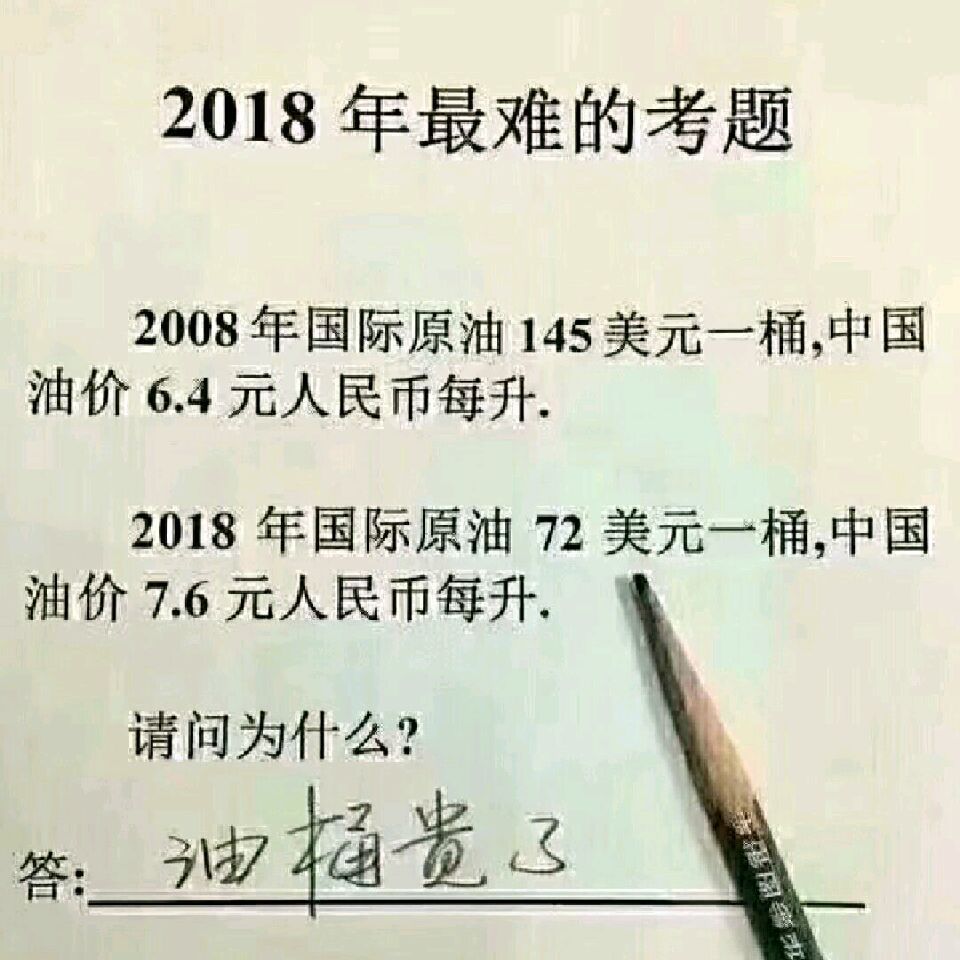 2018 年最难的考题
2008年国际原油145美元一桶,中国
油价 6.4 元人民币每升.
2018 年国际原油 72 美元一桶,中国
油价 7.6 元人民币每升.
请问为什么?
答: 油桶贵了